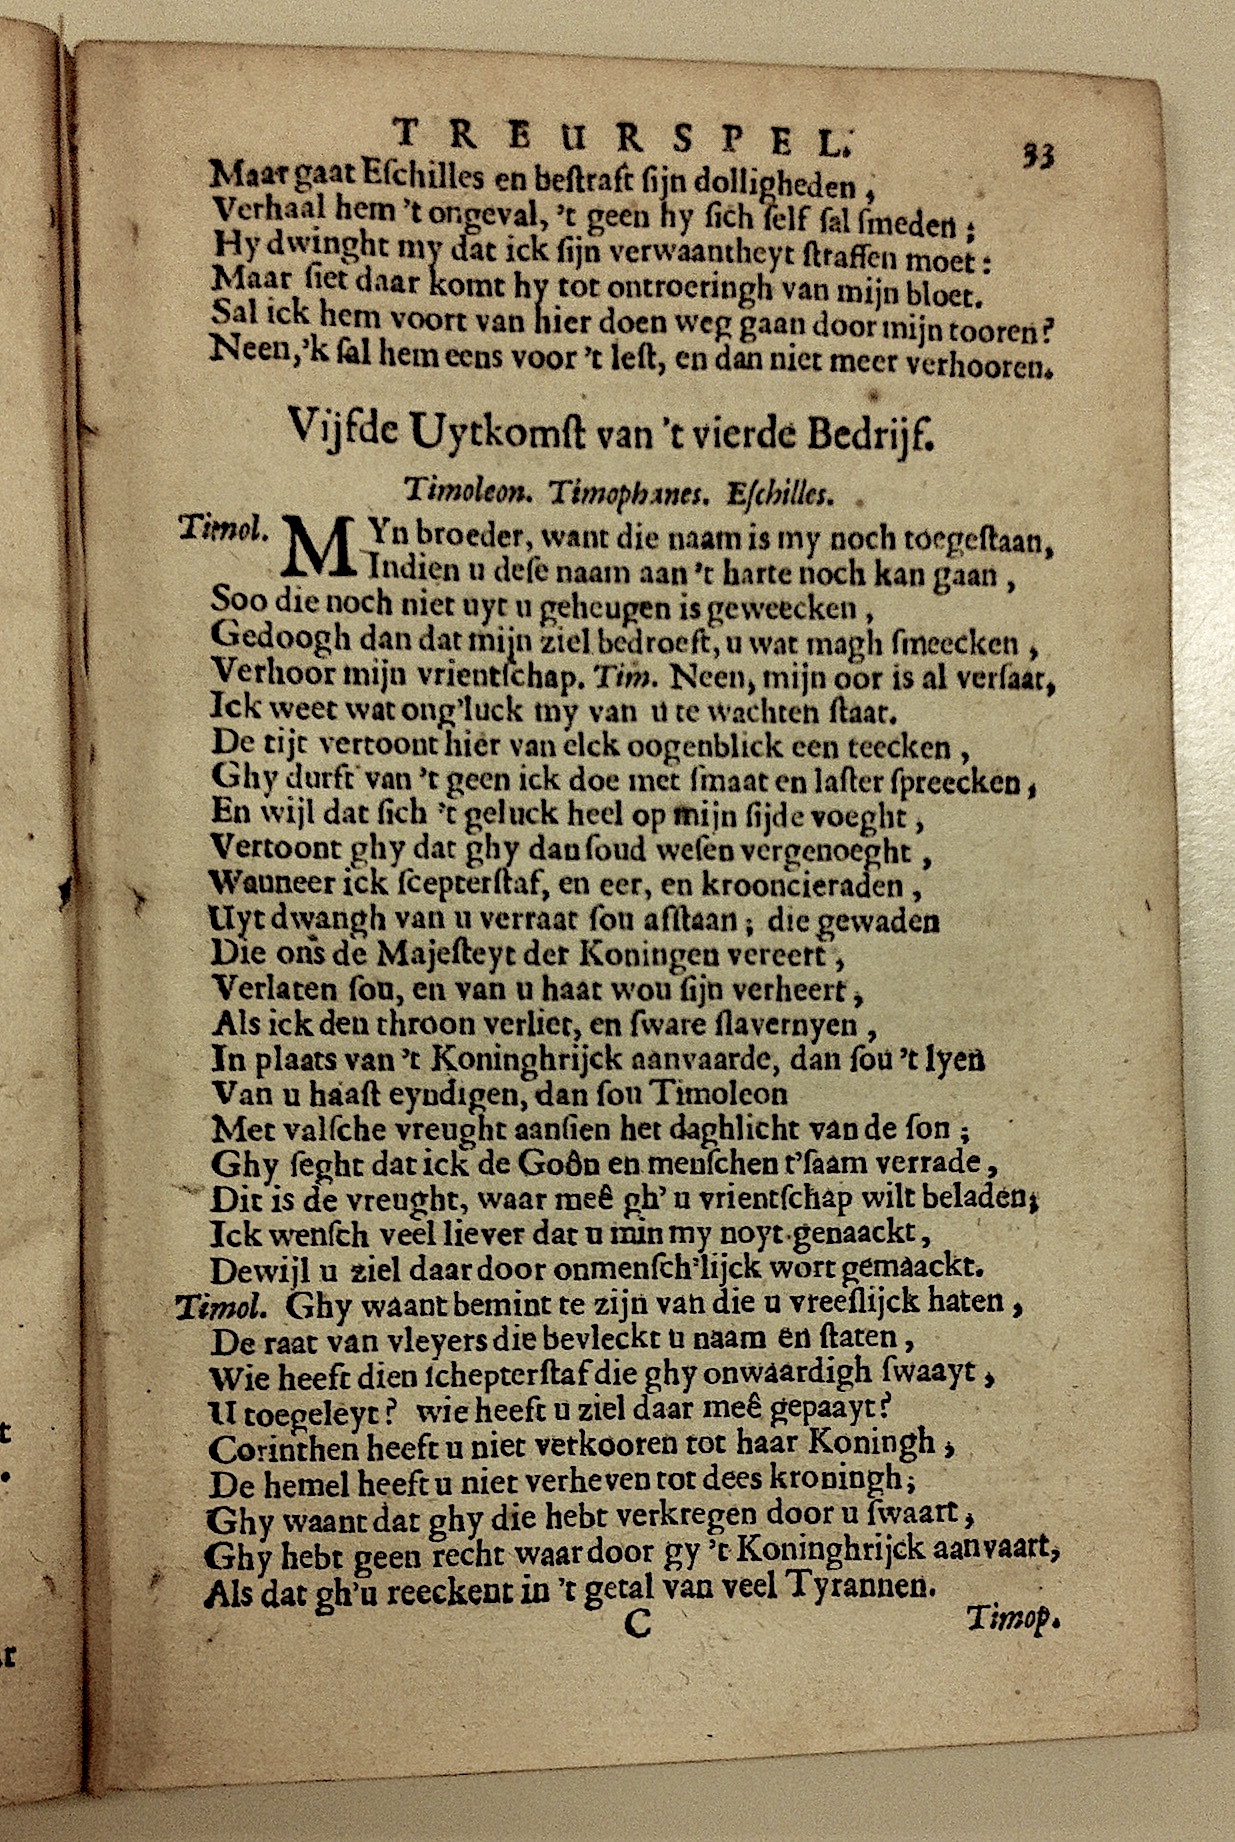 TREURSPEL. 33
Maar gaat Eſchilles en beſtraft ſijn dolligheden,
Verhaal hem 't ongeval, 't geen hy ſich ſelf ſal ſmeden;
Hy dwinght my dat ick ſijn verwaantheyt ſtraffen moet:
Maar ſiet daar komt hy tot ontroeringh van mijn bloet.
Sal ick hem voort van hier doen weg gaan door mijn tooren?
Neen, 'k ſal hem eens voor 't leſt, en dan niet meer verhooren.
Vijfde Uytkomſt van 't vierde Bedrijf.
Timoleon. Timophanes. Eſchilles.
Timol. MYn broeder, want die naam is my noch toegeſtaan,
Indien u deſe naam aan 't harte noch kan gaan,
Soo die noch niet uyt u geheugen is geweecken,
Gedoogh dan dat mijn ziel bedroeft, u wat magh ſmeecken,
Verhoor mijn vrientſchap. Tim. Neen, mijn oor is al verſaat,
Ick weet wat ong'luck my van u te wachten ſtaat.
De tijt vertoont hier van elck oogenblick een teecken,
Ghy durft van 't geen ick doe met ſmaat en laſter ſpreecken,
En wijl dat ſich 't geluck heel op mijn ſijde voeght,
Vertoont ghy dat ghy dan ſoud weſen vergenoeght,
Wanneer ick ſcepterſtaf, en eer, en krooncieraden,
Uyt dwangh van u verraat ſou afſtaan; die gewaden
Die ons de Majeſteyt der Koningen vereert,
Verlaten ſou, en van u haat wou ſijn verheert,
Als ick den throon verliet, en ſware ſlavernyen,
In plaats van 't Koninghrijck aanvaarde, dan ſou 't lyen
Van u haaſt eyndigen, dan ſou Timoleon
Met valſche vreught aanſien het daghlicht van de ſon;
Ghy ſeght dat ick de Goôn en menſchen t'ſaam verrade,
Dit is de vreught, waar meê gh' u vrientſchap wilt beladen;
Ick wenſch veel liever dat u min my noyt genaackt,
Dewijl u ziel daar door onmenſch'lijck wort gemaackt.
Timol. Ghy waant bemint te zijn van die u vreeſlijck haten,
De raat van vleyers die bevleckt u naam en ſtaten,
Wie heeft dien ſchepterſtaf die ghy onwaardigh ſwaayt,
U toegeleyt? wie heeft u ziel daar meê gepaayt?
Corinthen heeft u niet verkooren tot haar Koningh,
De hemel heeft u niet verheven tot dees kroningh;
Ghy waant dat ghy die hebt verkregen door u ſwaart,
Ghy hebt geen recht waar door gy 't Koninghrijck aanvaart,
Als dat gh'u reeckent in 't getal van veel Tyrannen.
C Timop.